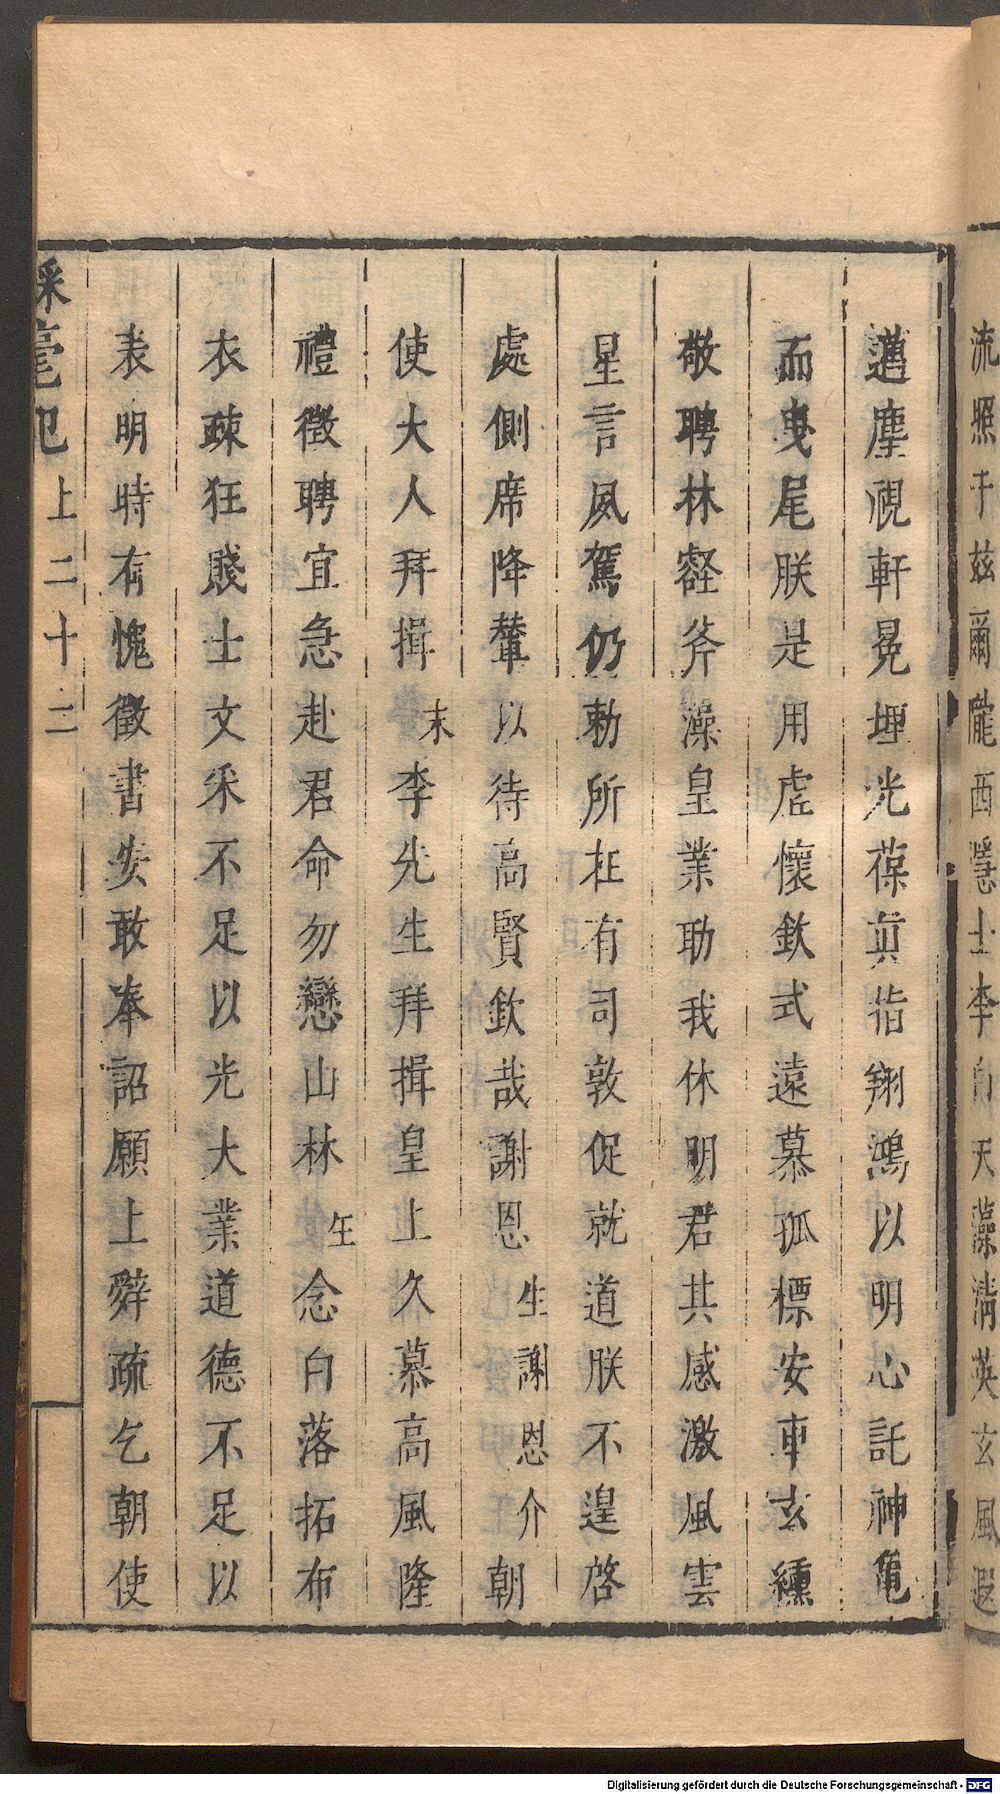 流照于茲爾隴西隱士李白天藻清英玄風遐
邁塵視軒冕埋光葆真指翔鴻以明心託神龜
而曳尾朕是用虛懷欽式遠慕孤標安車玄纁
敬聘林壑斧藻皇業助我休明君其感激風雲
星言夙駕仍勅所在有司敦促就道朕不遑啓
處側席降輦以待高賢欽哉謝恩生謝恩介朝
使大人拜揖末李先生拜揖皇上久慕高風隆
禮徵聘宜急赴君命勿戀山林生念白落拓布
衣疎狂賤士文采不足以光大業道德不足以
表明時有愧徵書安敢奉詔願上辭疏乞朝使
采毫記 上二十二
Digitalisierung gefördert durch die Deutsche Forschungsgemeinschaft - DFG